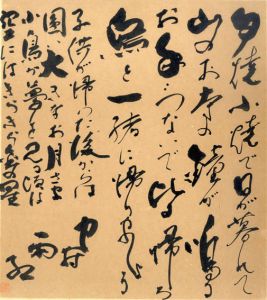 夕焼小焼で日が暮れて
山のお寺の鐘が鳴る
お手々つないで皆帰ろ
烏と一緒に帰りましょう
子供が帰った後からは
圓い大きなお月さま
小鳥が夢を見る頃は
空にはきらきら金の星
中村雨紅